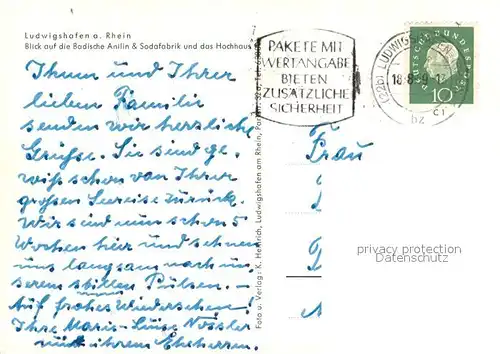 Ludwigshafen a. Rhein
Blick auf die Badische Anilin & Sodafabrik und das Hochhaus
Ihnen und Ihrer
lieben Familie
senden wir herzliche
Grüße. Sie sind ge-
wiß schon von Ihrer
großen Seereise zurück.
Wir sind nun schon 5
Wochen hier und sehnen
uns langsam nach un-
serem stillen
Auf frohes Wiedersehen!
Ihre Marie-Luise Nossler
und ihrem Eheherrn.
Foto u. Verlag: K. Heinrich, Ludwigshafen am Rhein,
PAKETE MIT
WERTANGABE
BIETEN
ZUSÄTZLICHE
SICHERHEIT
(22b) LUDWIGSHAFEN
18-8-59
bz
DEUTSCHE BUNDESPOST
10
Frau
privacy protection
Datenschutz